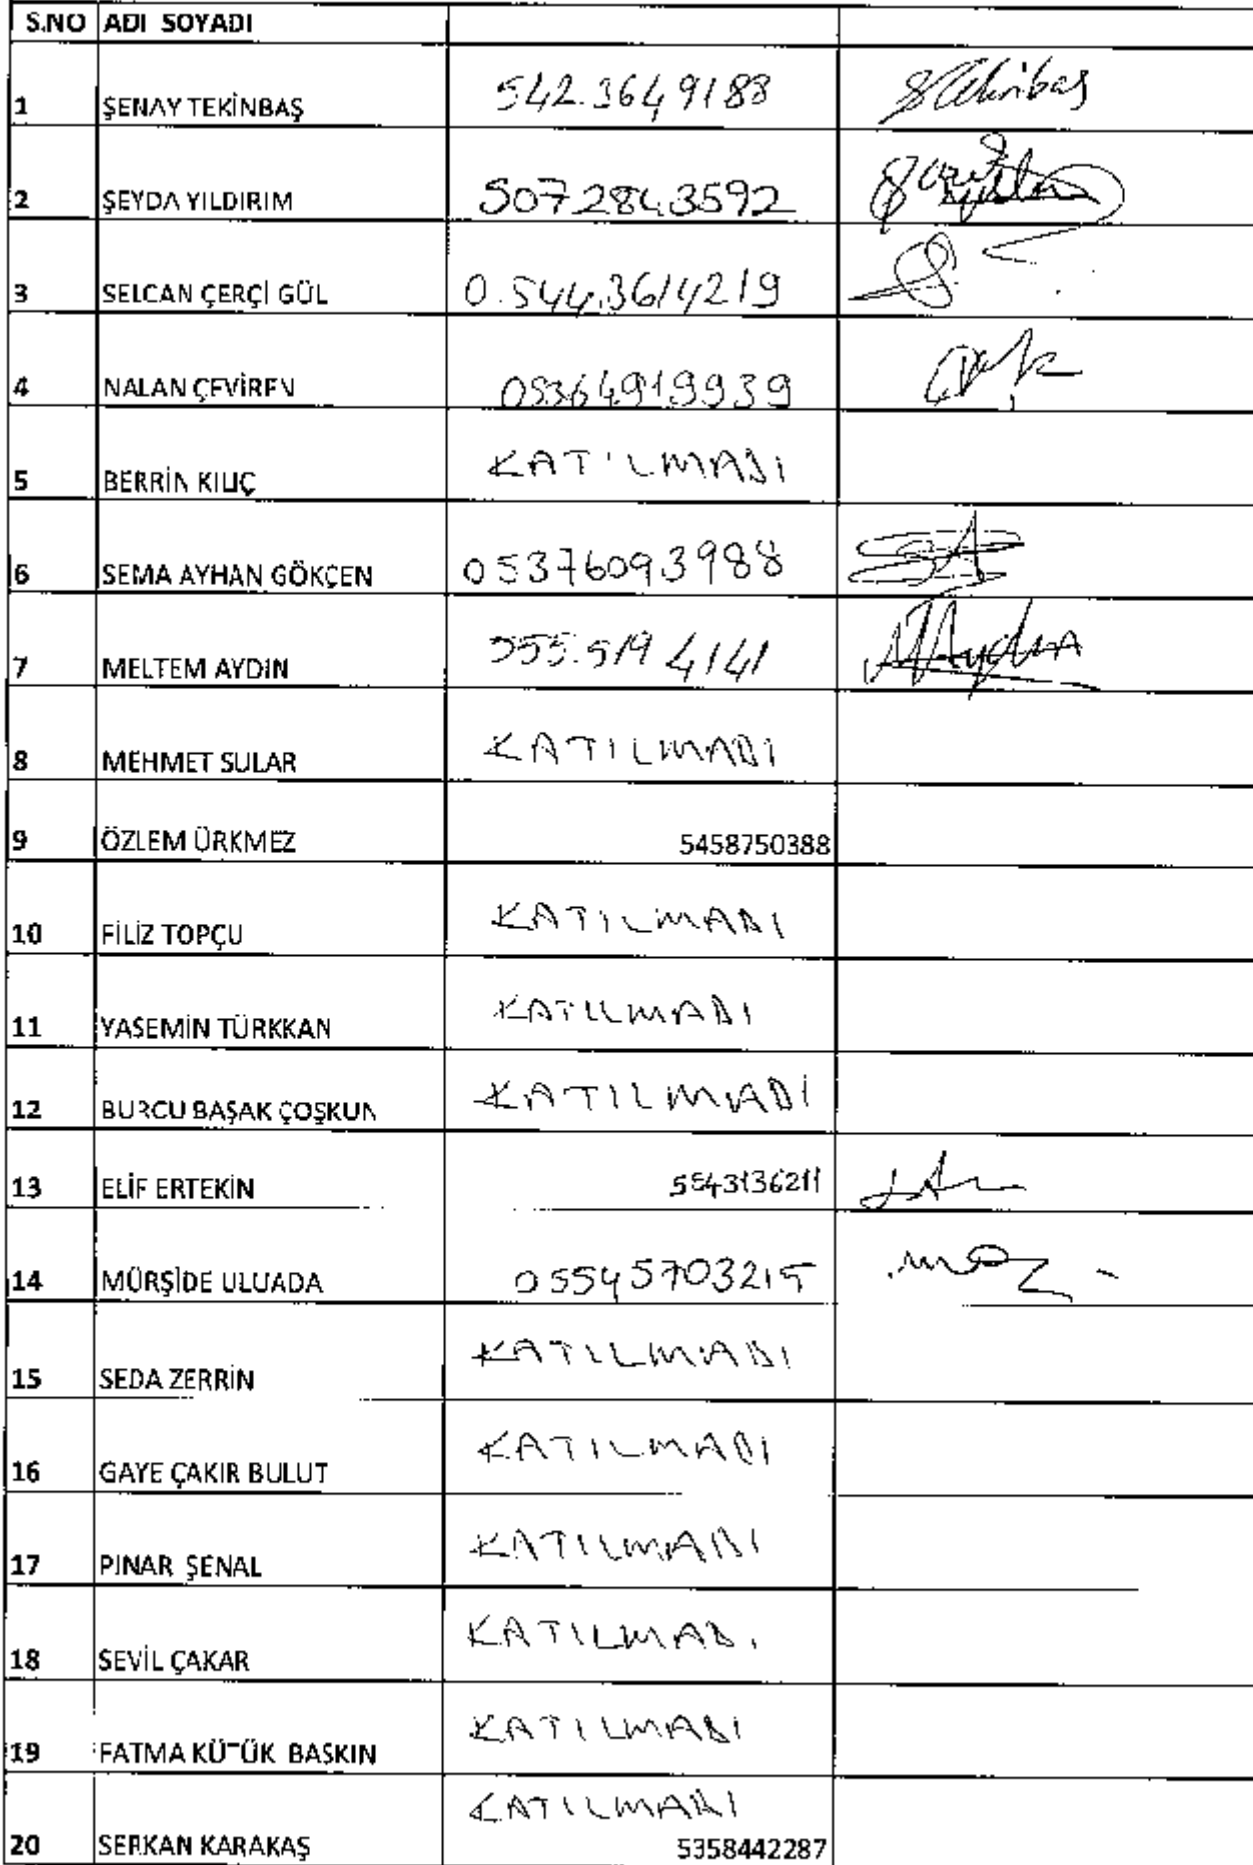 S.NO ADI SOYADI
1 ŞENAY TEKİNBAŞ 542.3649188 STekinbaş
2 ŞEYDA YILDIRIM 5072843592
3 SELCAN ÇERÇİ GÜL 0.544.3614219
4 NALAN ÇEVİREN 05364919939
5 BERRİN KILIÇ KATILMADI
6 SEMA AYHAN GÖKÇEN 05376093988 SA
7 MELTEM AYDIN 555.519 4141 MAydın
8 MEHMET SULAR KATILMADI
9 ÖZLEM ÜRKMEZ 5458750388
10 FİLİZ TOPÇU KATILMADI
11 YASEMİN TÜRKKAN KATILMADI
12 BURCU BAŞAK ÇOŞKUN KATILMADI
13 ELİF ERTEKİN 5543136211
14 MÜRŞİDE ULUADA 05545703215
15 SEDA ZERRİN KATILMADI
16 GAYE ÇAKIR BULUT KATILMADI
17 PINAR ŞENAL KATILMADI
18 SEVİL ÇAKAR KATILMADI
19 FATMA KÜTÜK BASKIN KATILMADI
KATILMADI
20 SERKAN KARAKAŞ 5358442287